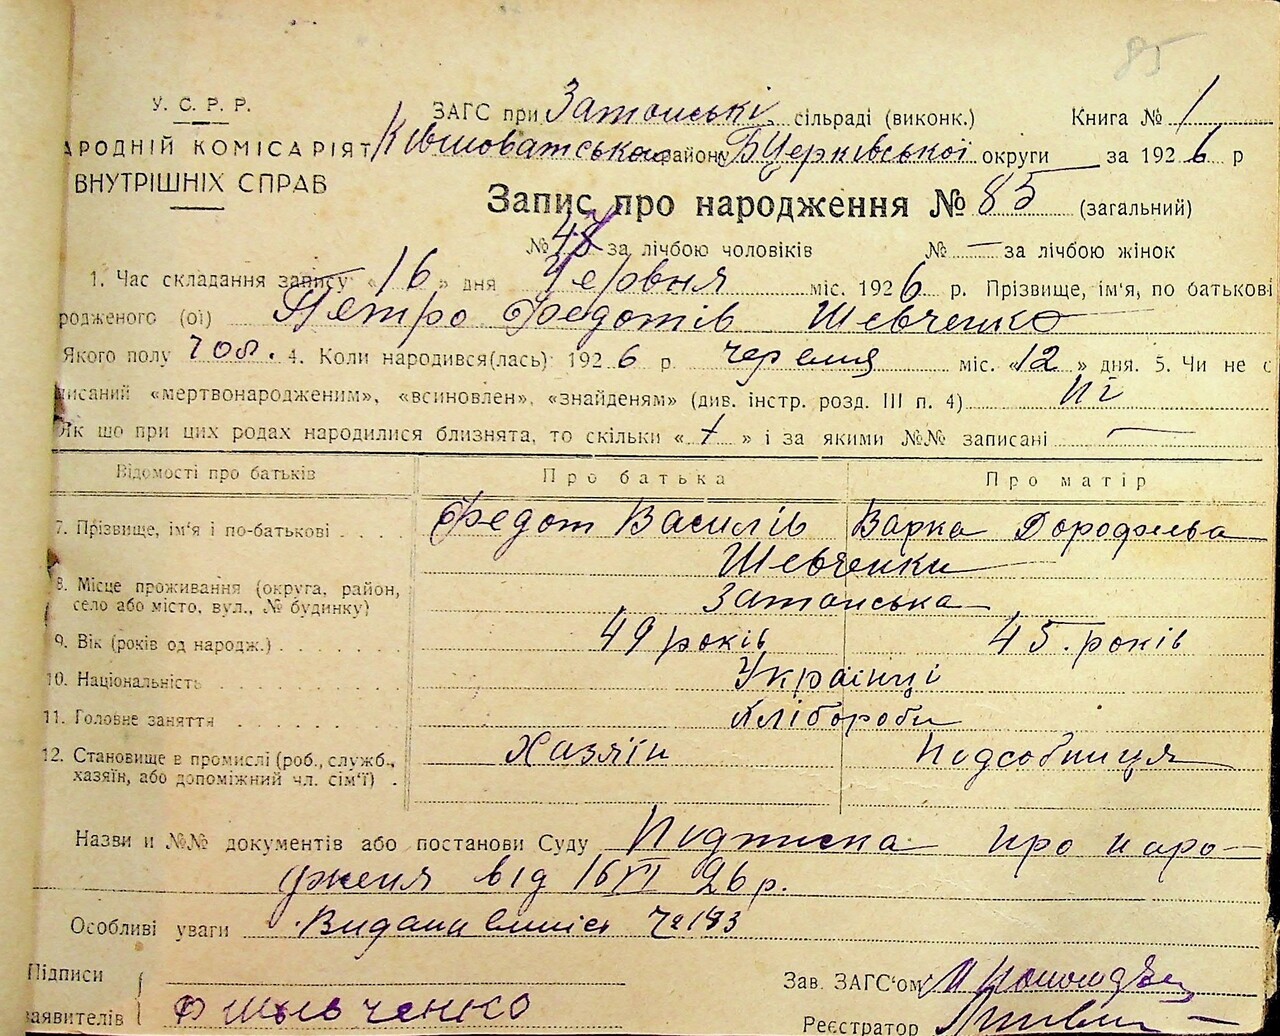 85
У. С. Р. Р.
АРОДНІЙ КОМІСАРІЯТ
ВНУТРІШНІХ СПРАВ
ЗАГС при Затонські сільраді (виконк.) Книга № 1
району БЦерківської округи за 1926 р
Запис про народження № 85 (загальний)
№ за лічбою чоловіків № — за лічбою жінок
1. Час складання запису «16» дня Червня міс. 1926 р. Прізвище, ім'я, по батькові
родженого (ої) Петро Федотів Шевченко
Якого полу чол. 4. Коли народився(лась) 1926 р. червня міс. «12» дня. 5. Чи не є
писаний «мертвонародженим», «всиновлен», «знайденям» (див. інстр. розд. III п. 4) Ні
Як що при цих родах народилися близнята, то скільки « » і за якими №№ записані —
Відомості про батьків Про батька Про матір
7. Прізвище, ім'я і по-батькові Федот Василів Варка Дорофеєва
Шевченки
8. Місце проживання (округа, район,
село або місто, вул., № будинку) Затонська
9. Вік (років од народж.) 49 років 45. років
10. Національність Українці
11. Головне заняття Хлібороби
12. Становище в промислі (роб., служб.,
хазяїн, або допоміжний чл. сім'ї) Хазяїн Подсобниця
Назви и №№ документів або постанови Суду Подписка про наро-
дженя від 16 VI 26 р.
Особливі уваги Видана № 183
Підписи
аявителів
Зав. ЗАГС'ом
Реєстратор